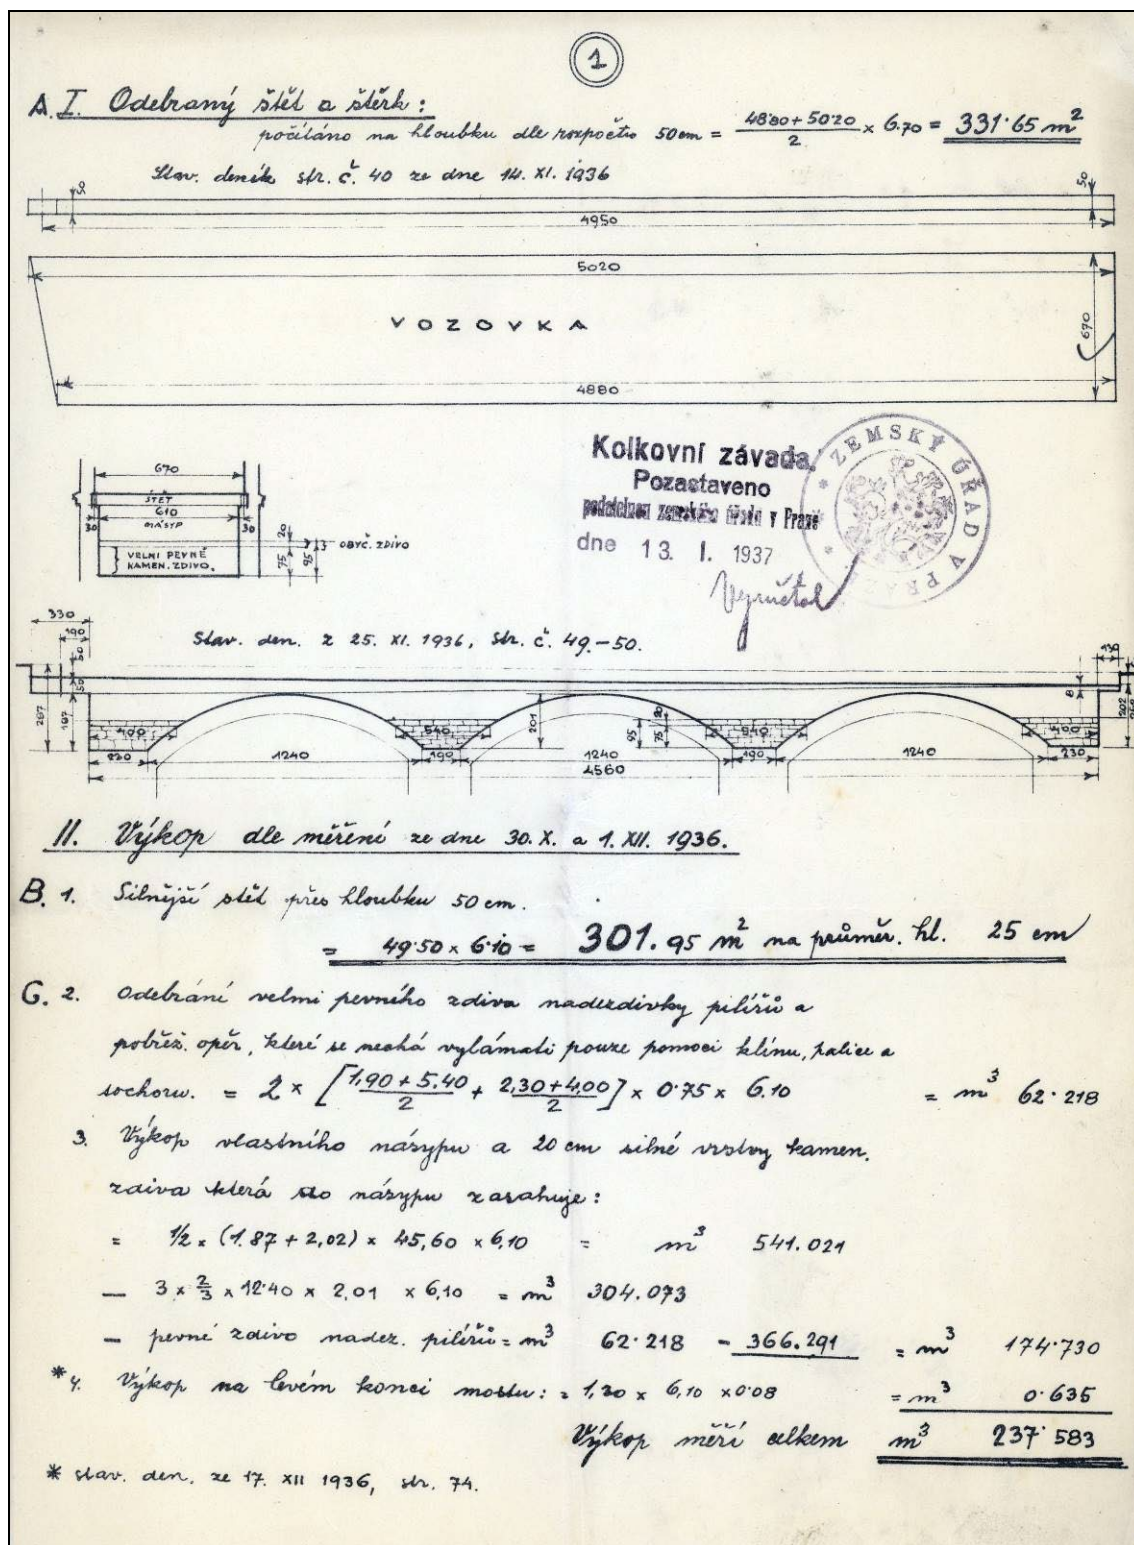 1
A. I. Odebraný štět a štěrk:
počítáno na hloubku dle rozpočtu 50 cm = 48.80 + 50.20 / 2 × 6.70 = 331.65 m²
Stav. deník str. č. 40 ze dne 14. XI. 1936
50
50
4950
5020
VOZOVKA
670
4880
Kolkovní závada.
Pozastaveno
podatelnou zemského úřadu v Praze
dne 13. I. 1937
ZEMSKÝ ÚŘAD V PRAZE
670
ŠTĚT
610
30 NÁSYP 30
20
OBYČ. ZDIVO
VELMI PEVNÉ
KAMEN. ZDIVO.
75
95
330
190
Stav. den. z 25. XI. 1936, str. č. 49.–50.
50
50
187
8
202
400
540
201
95
75
20
540
400
1240
190
1240
190
1240
230
4560
II. Výkop dle měření ze dne 30. X. a 1. XII. 1936.
B. 1. Silnější štět přes hloubku 50 cm.
= 49.50 × 6.10 = 301.95 m² na průměr. hl. 25 cm
2. Odebrání velmi pevného zdiva nadezdívky pilířů a
pobřež. opěr, které se nechá vylámati pouze pomocí klínu, palice a
sochoru. = 2 × [1,90 + 5,40 / 2 + 2,30 + 4,00 / 2] × 0.75 × 6.10 = m³ 62.218
3. Výkop vlastního násypu a 20 cm silné vrstvy kamen.
zdiva která do násypu zasahuje:
= 1/2 × (1.87 + 2,02) × 45,60 × 6,10 = m³ 541.021
— 3 × 2/3 × 12.40 × 2,01 × 6,10 = m³ 304.073
— pevné zdivo nadez. pilířů = m³ 62.218 – 366.291 = m³ 174.730
* 4. Výkop na levém konci mostu: = 1,30 × 6,10 × 0.08 = m³ 0.635
Výkop měří celkem m³ 237.583
* stav. den. ze 17. XII 1936, str. 74.